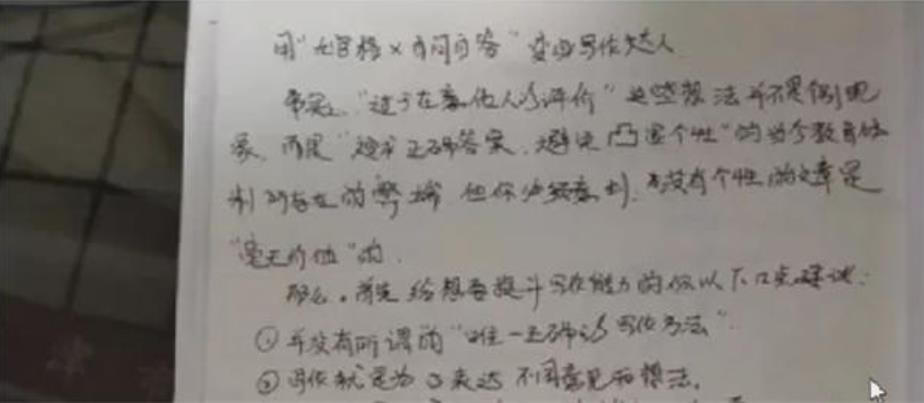 用“九宫格×自问自答”变身写作达人
“过于在意他人的评价”这些想法并不是个别现
象，而是“追求正确答案，避免凸显个性”的当今教育体
制所存在的弊端 但你必须意识到，没有个性的文章是
“毫无价值”的.
那么，首先给想要提升写作能力的你以下几点建议：
①并没有所谓的“唯一正确的写作方法”.
②写作就是为了表达不同意见和想法。